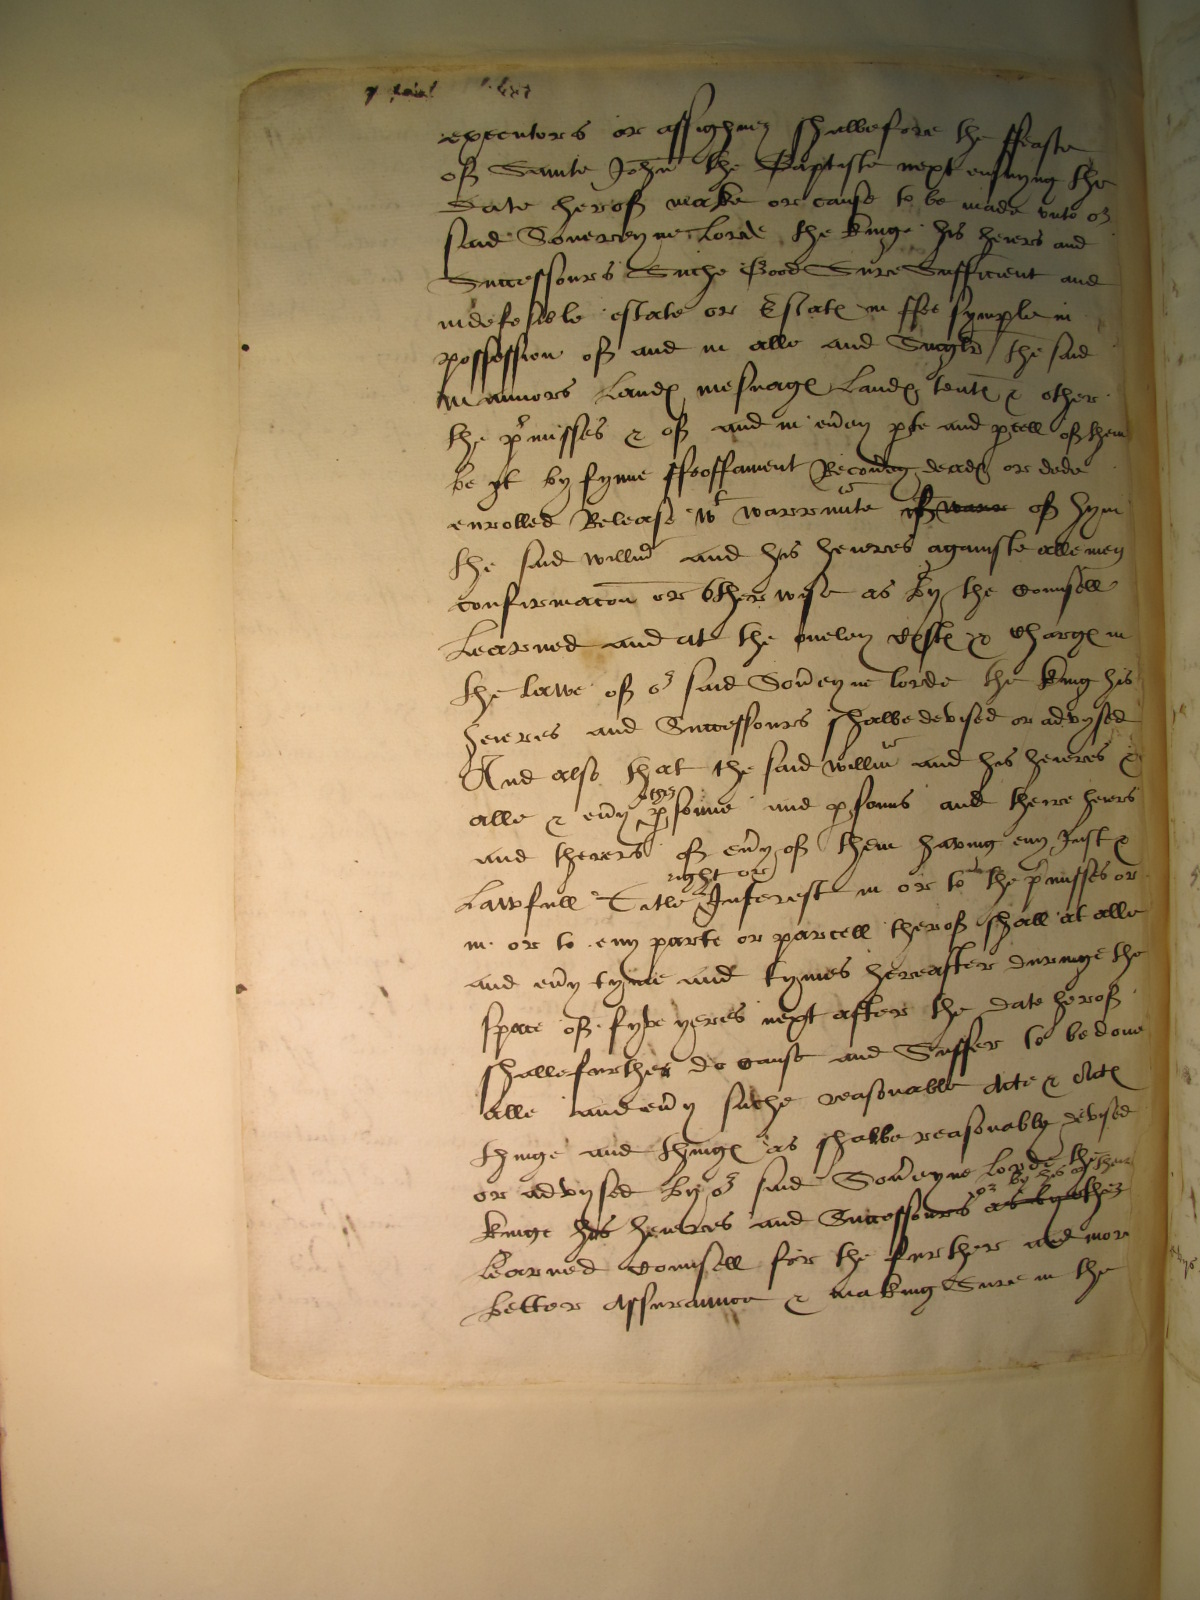 executors or assighnez shalbefore the ffeaste
off Saunte John the Baptiste next ensuyng the
Date heroff make or cause to be made unto or
said Sovereyne Lorde the kinge his heiers and
Successours Suche Good Sure Sufficient and
indefesible estate or Estat in ffee symple in
possession off and in alle and Singler the said
Mannors Land mesuag Land tent & other
the pmisses & off and in evy pte and pcell off them
be yt by fyne ffeoffament Recovy deade or dede
enrolled Release wt warrante off hym
the said Willm and his heieres againste alle men
confirmacon or otherwise as by the counsell
Learned and at the onely Cost & Charg in
the lawe off or said Soveyne lorde the king his
heieres and Successours shalbe devised or advysed
And also that the said Willm and his heieres &
other
alle & evy psonne and psonns and theire heiers
and theiers off evy off them having eny Just &
right or
Lawfull Title Interest in or to the pmisses or
in or to eny parte or parcell theroff shall at alle
and evy tyme and tymes hereafter duringe the
space off fyve yeres next after the date heroff
shallefurther do cause and Suffer to be done
alle and evy suche reasonable Acte & Act
thinge and thing as shalbe reasonably devised
or advysed by or said Soveyne lorde the
or by his or their
kinge his heieres and Successours as by other
Learned counsell for the further and mor
better Assuraunce & making Sure in the